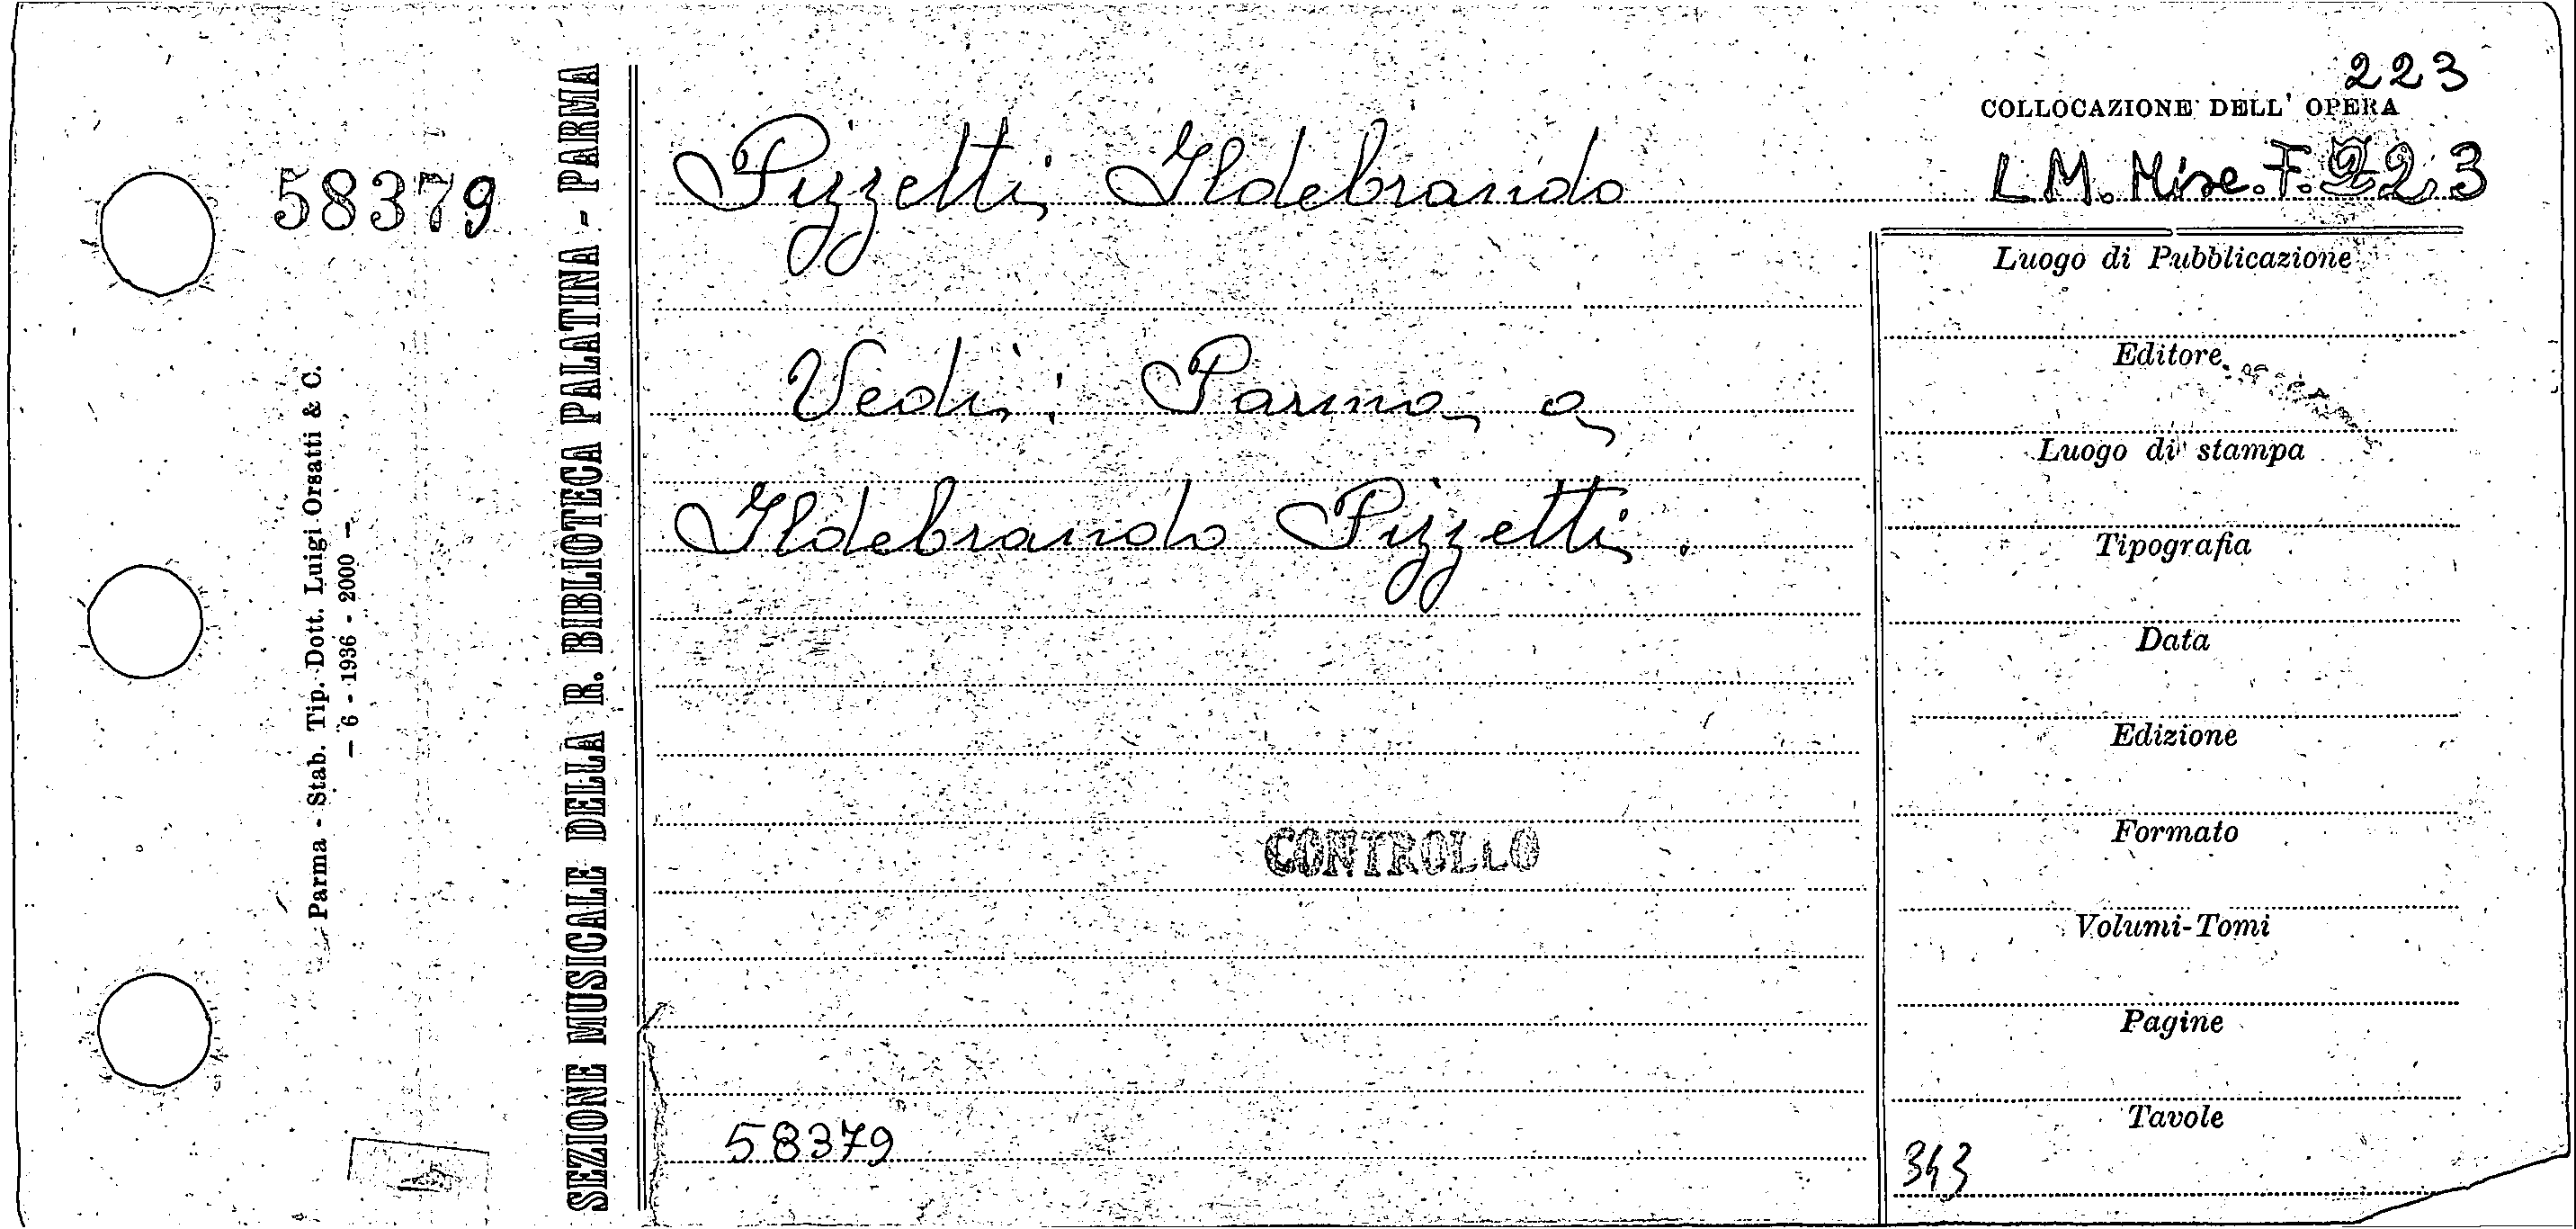 58379
Parma - Stab. Tip. Dott. Luigi Orsatti & C.
– 6 - 1936 - 2000 –
SEZIONE MUSICALE DELLA R. BIBLIOTECA PALATINA - PARMA
223
COLLOCAZIONE DELL' OPERA
Pizzetti Ildebrando
L M. Misc. F. 223
Vedi: Parma a
Ildebrando Pizzetti.
CONTROLLO
58379
Luogo di Pubblicazione
Editore
Luogo di stampa
Tipografia
Data
Edizione
Formato
Volumi-Tomi
Pagine
Tavole
343